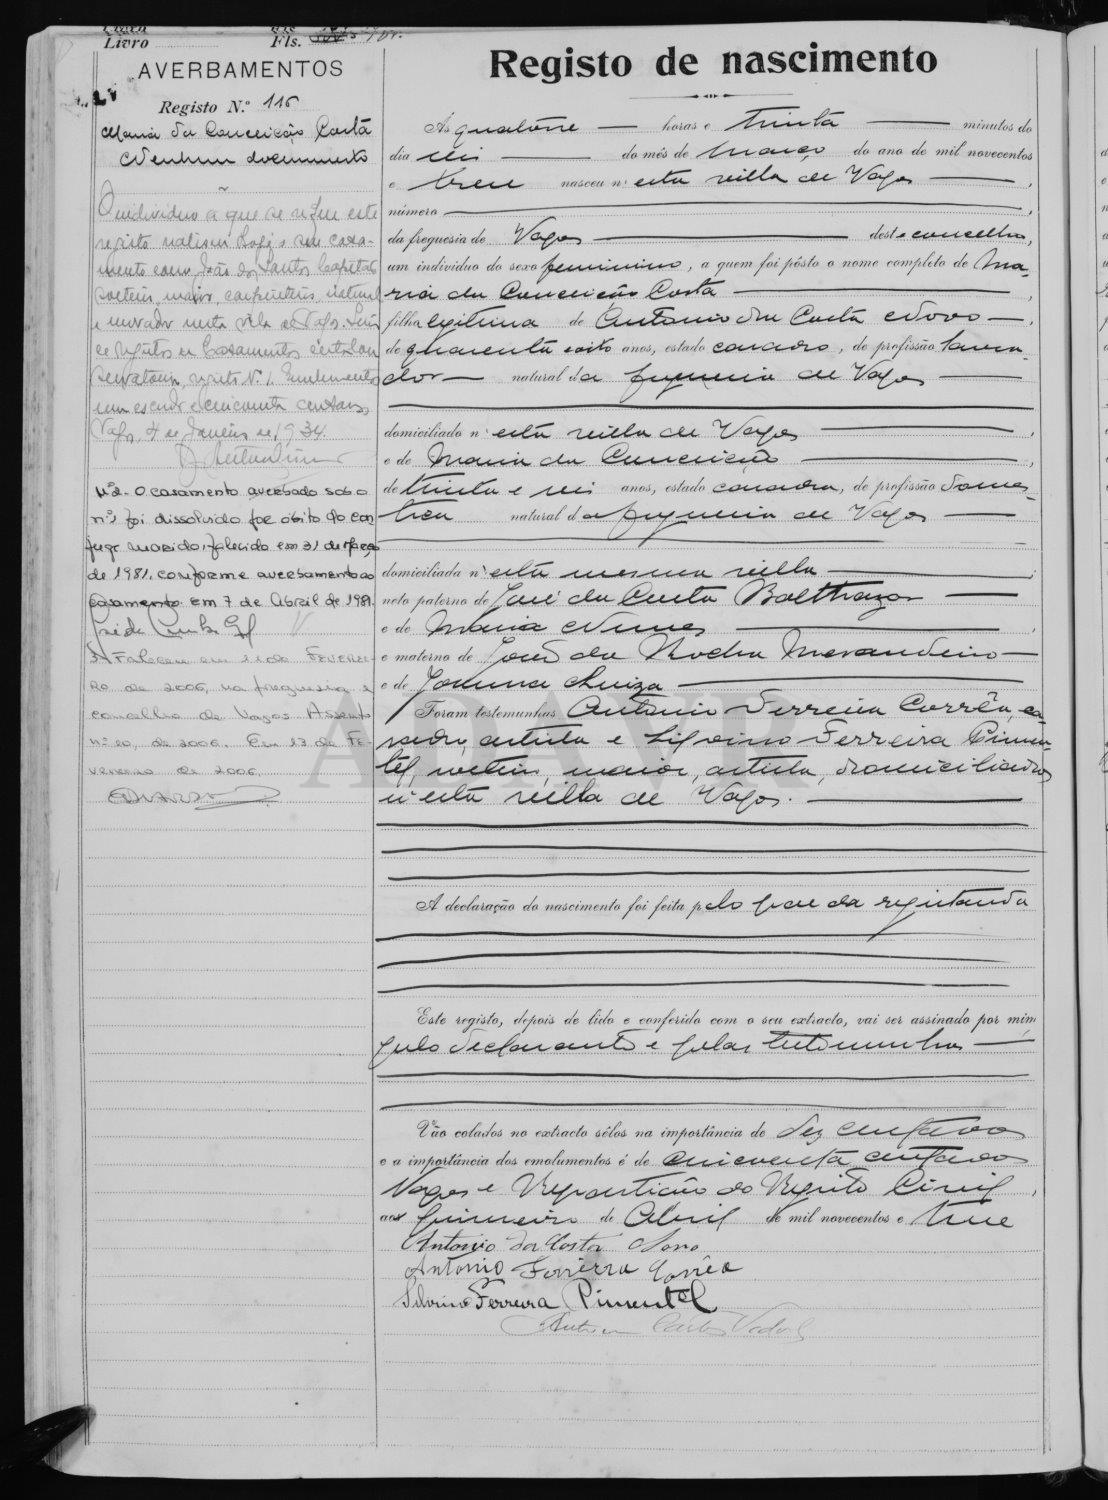 Livro Fls.
AVERBAMENTOS
Registo N.º 116
Maria da Conceição Costa
Nenhum documento
O individuo a que se refere este
registo realisou hoje o seu casa-
mento com João dos Santos Capela
solteiro, maior, carpinteiro, natural
e morador nesta vila de Vagos.
registo N.º 1. Emolumento
um escudo e cincoenta centavos
Vagos, 4 de Janeiro de 1934.
Nº2 - O casamento averbado sob o
nº1 foi dissolvido por óbito do con
juge marido, falecido em 31 de Março
de 1981, conforme averbamento ao
casamento. Em 7 de Abril de 1981.
3. Faleceu em de Feverei-
ro de 2006, na freguesia e
concelho de Vagos. Assento
nº 20, de 2006. Em 13 de Fe-
vereiro de 2006.
Registo de nascimento
Às quatorze horas e trinta minutos do
dia seis do mês de março do ano de mil novecentos
e treze nasceu n'esta villa de Vagos
número
da freguesia de Vagos deste concelho,
um individuo do sexo feminino, a quem foi pôsto o nome completo de Ma-
ria da Conceição Costa
filha legitima de Antonio da Costa Novo
de quarenta e oito anos, estado casado, de profissão lavra-
dor natural da freguesia de Vagos
domiciliado n'esta villa de Vagos
e de Maria da Conceição
de trinta e seis anos, estado casada, de profissão domes-
tica natural da freguesia de Vagos
domiciliada n'esta mesma villa
neto paterno de José da Costa Balthazar
e de Maria Nunes
e materno de José da Rocha
e de Joanna Luiza
Foram testemunhas Antonio Ferreira Corrêa, ca-
sado, artista e Silvino Ferreira Pimen-
tel, solteiro, maior, artista, domiciliados
n'esta villa de Vagos.
A declaração do nascimento foi feita pelo pae da registanda
Este registo, depois de lido e conferido com o seu extracto, vai ser assinado por mim
pelo declarante e pelas testemunhas
Vão colados no extracto sêlos na importância de dez centavos
e a importância dos emolumentos é de cincoenta centavos
Vagos e Repartição do Registo Civil,
aos primeiro de Abril de mil novecentos e treze
Antonio da Costa Novo
Antonio Ferreira Corrêa
Silvino Ferreira Pimentel
ADAVR